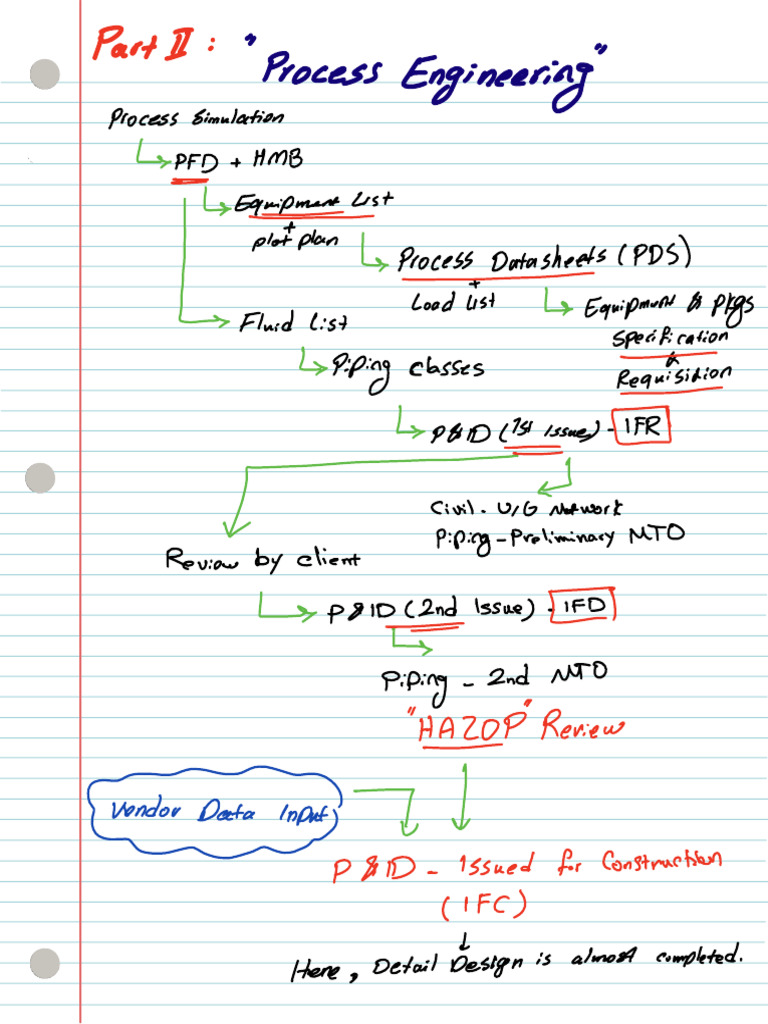 Part II : "Process Engineering"
Process Simulation
PFD + HMB
Equipment List
+
plot plan
Process Datasheets (PDS)
+
Load List
Equipment & pkgs
Specification
&
Requisition
Fluid List
Piping classes
P&ID (1st Issue) - IFR
Civil - U/G Network
Piping - Preliminary MTO
Review by client
P&ID (2nd Issue) - IFD
Piping - 2nd MTO
"HAZOP" Review
Vendor Data Input
P&ID - Issued for Construction
(IFC)
Here, Detail Design is almost completed.